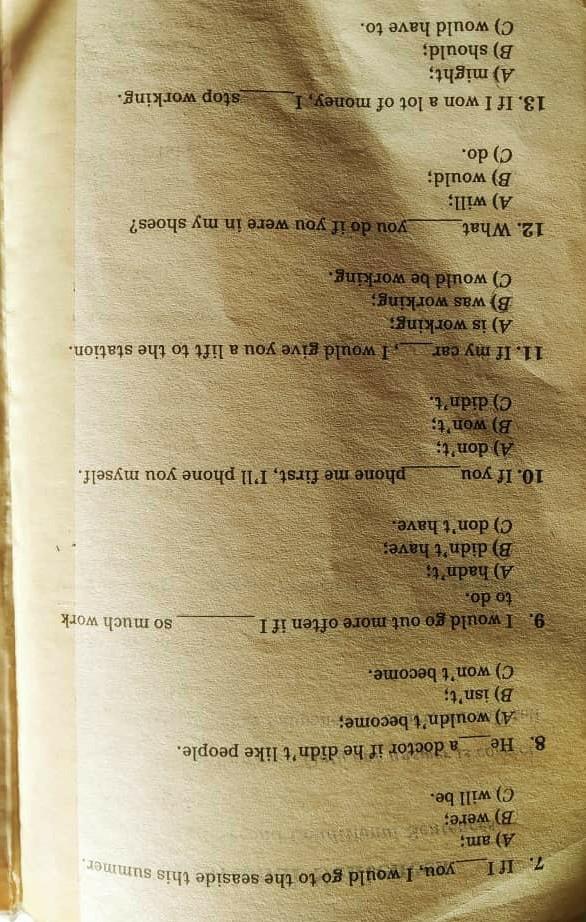 7. If I ___ you, I would go to the seaside this summer.
A) am;
B) were;
C) will be.
8. He ___ a doctor if he didn't like people.
A) wouldn't become;
B) isn't;
C) won't become.
9. I would go out more often if I ___ so much work
to do.
A) hadn't;
B) didn't have;
C) don't have.
10. If you ___ phone me first, I'll phone you myself.
A) don't;
B) won't;
C) didn't.
11. If my car ___, I would give you a lift to the station.
A) is working;
B) was working;
C) would be working.
12. What ___ you do if you were in my shoes?
A) will;
B) would;
C) do.
13. If I won a lot of money, I ___ stop working.
A) might;
B) should;
C) would have to.